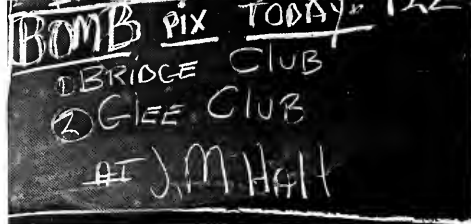 BOMB PIX TODAY
① BRIDGE CLUB
② GLEE CLUB
AT J.M HAll